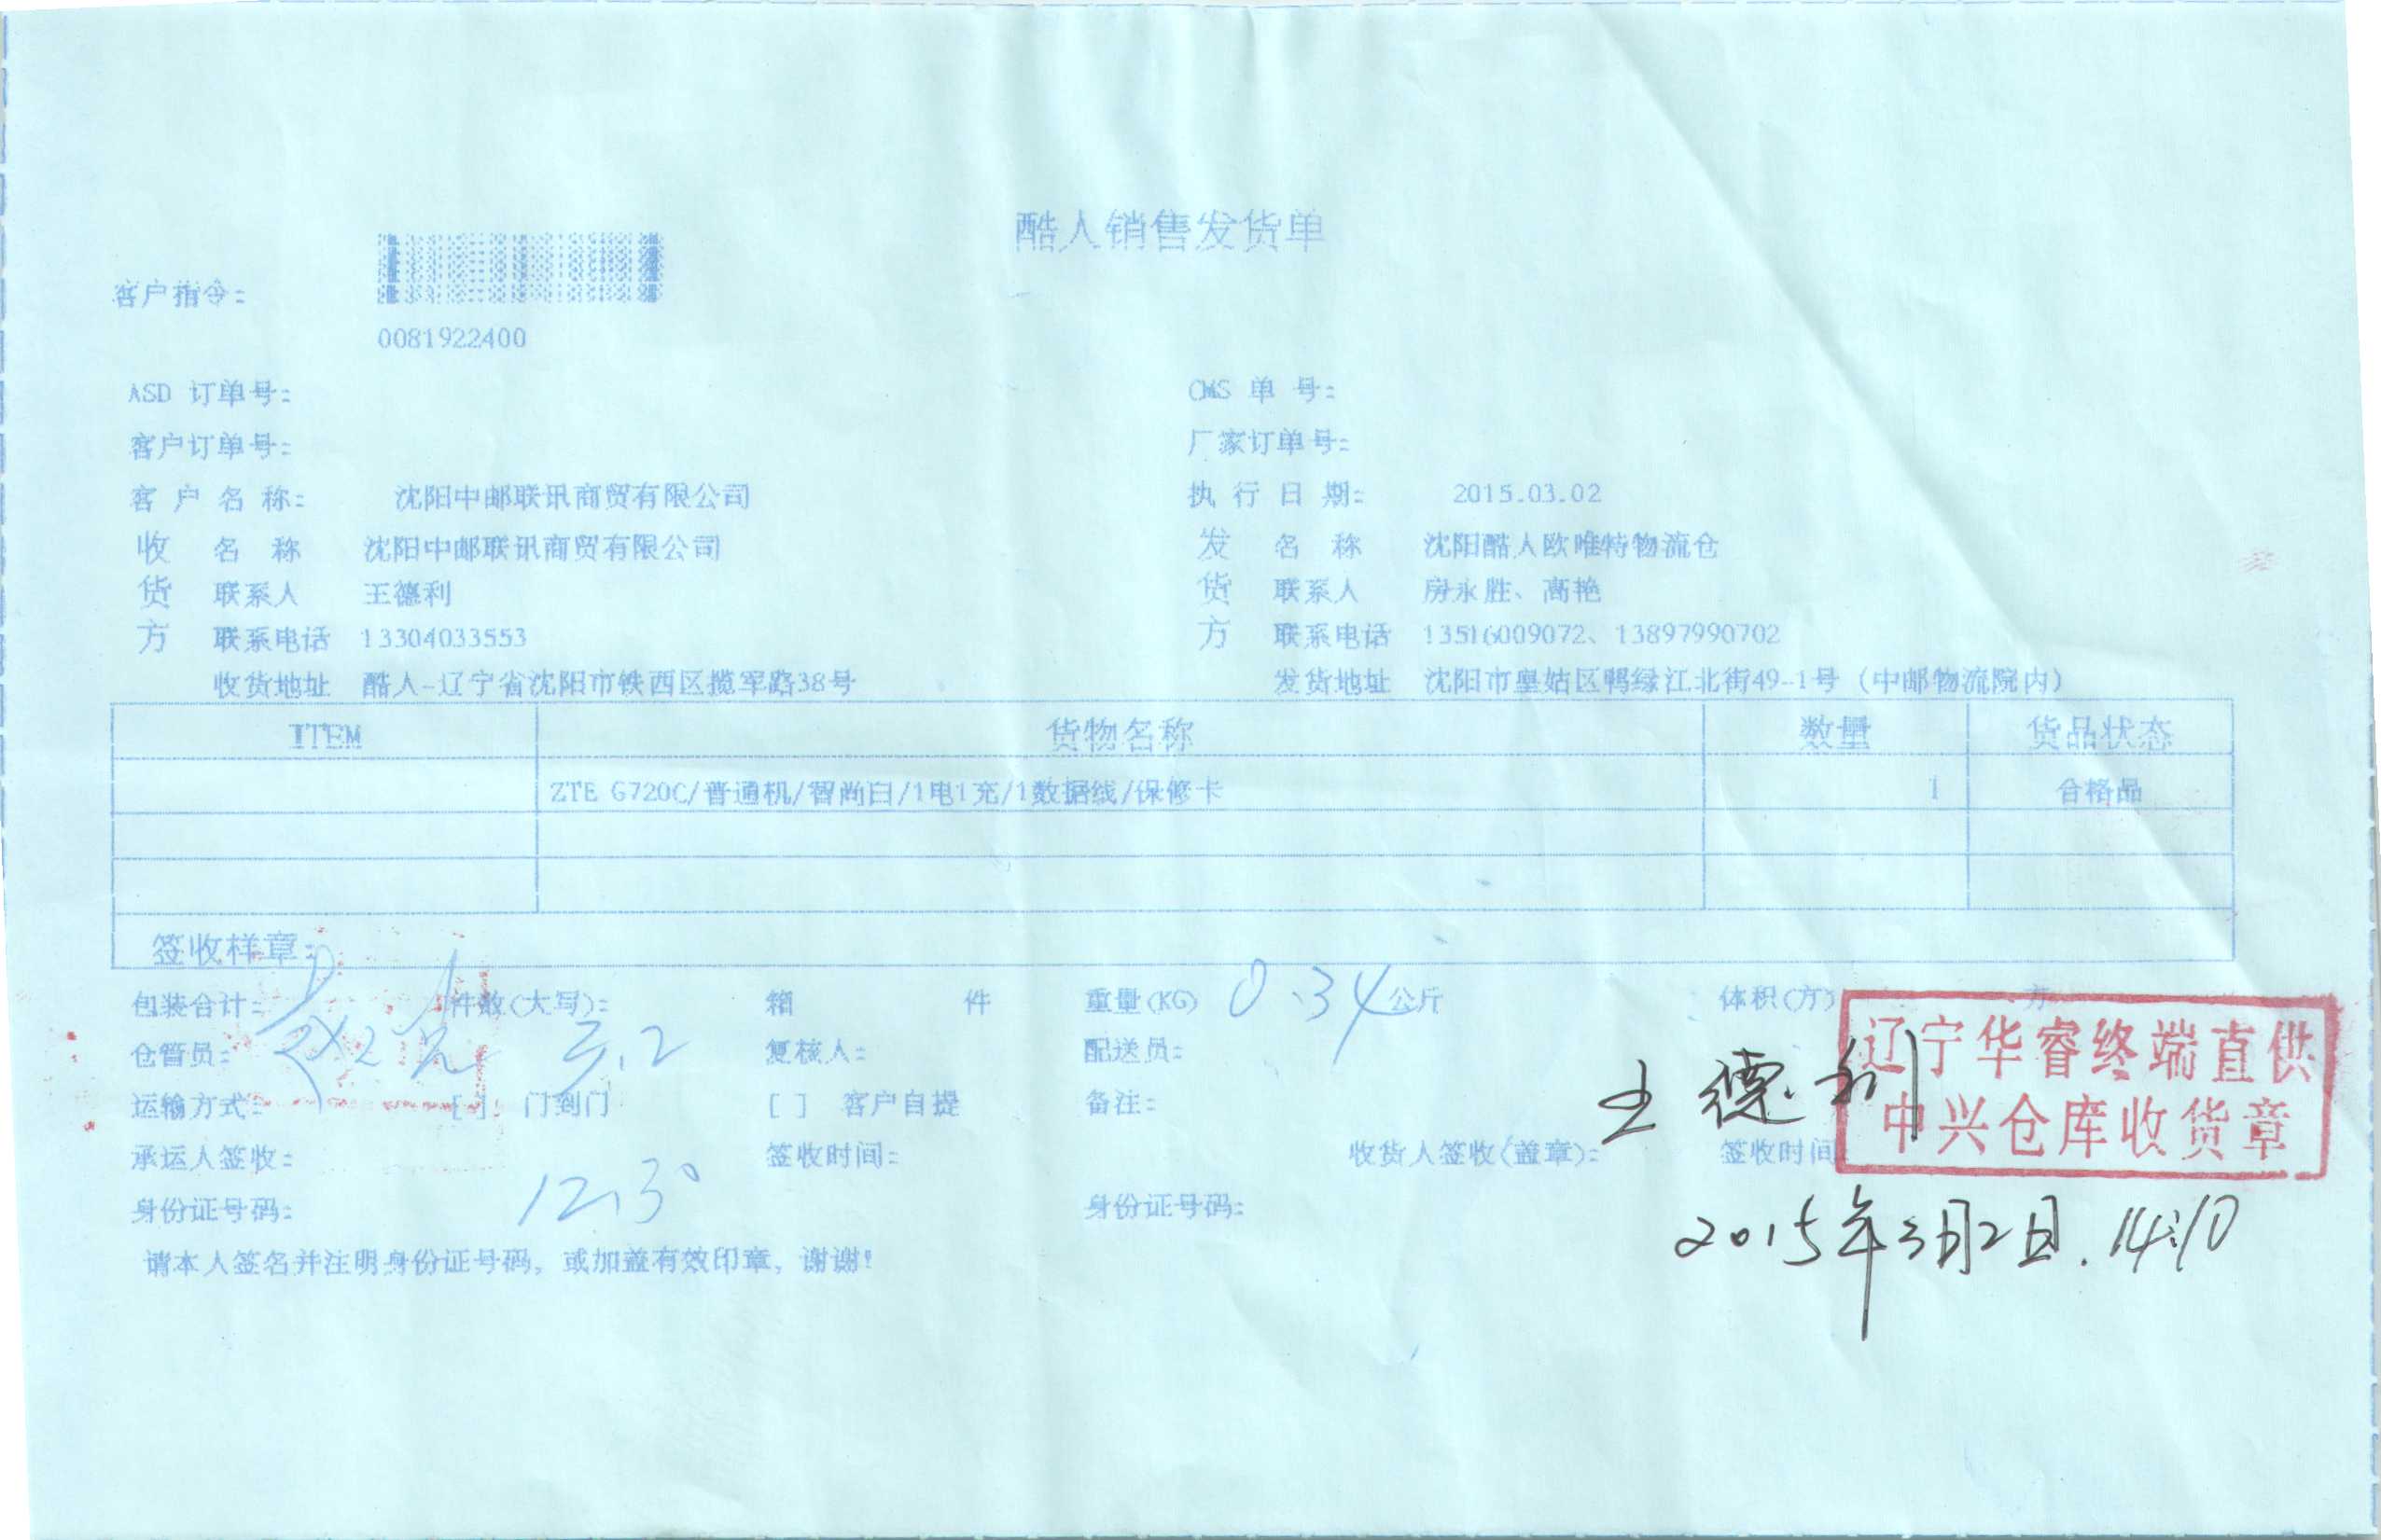 酷人销售发货单
客户指令:
0081922400
ASD 订单号: CMS 单 号:
客户订单号: 厂家订单号:
客 户 名 称: 沈阳中邮联讯商贸有限公司 执 行 日 期: 2015.03.02
收 名 称 沈阳中邮联讯商贸有限公司 发 名 称 沈阳酷人欧唯特物流仓
货 联系人 王德利 货 联系人 房永胜、高艳
方 联系电话 13304033553 方 联系电话 13516009072、13897990702
收货地址 酷人-辽宁省沈阳市铁西区揽军路38号 发货地址 沈阳市皇姑区鸭绿江北街49-1号（中邮物流院内）
ITEM 货物名称 数量 货品状态
ZTE G720C/普通机/智尚白/1电1充/1数据线/保修卡 1 合格品
签收样章:
包装合计: 件数(大写): 箱 件 重量(KG) 0.34 公斤 体积(方) 方
仓管员: 3.2 复核人: 配送员:
辽宁华睿终端直供
中兴仓库收货章
运输方式: [ ] 门到门 [ ] 客户自提 备注:
王德利
承运人签收: 签收时间: 收货人签收(盖章): 签收时间
12:30
身份证号码: 身份证号码:
2015年3月2日. 14:10
请本人签名并注明身份证号码, 或加盖有效印章, 谢谢!